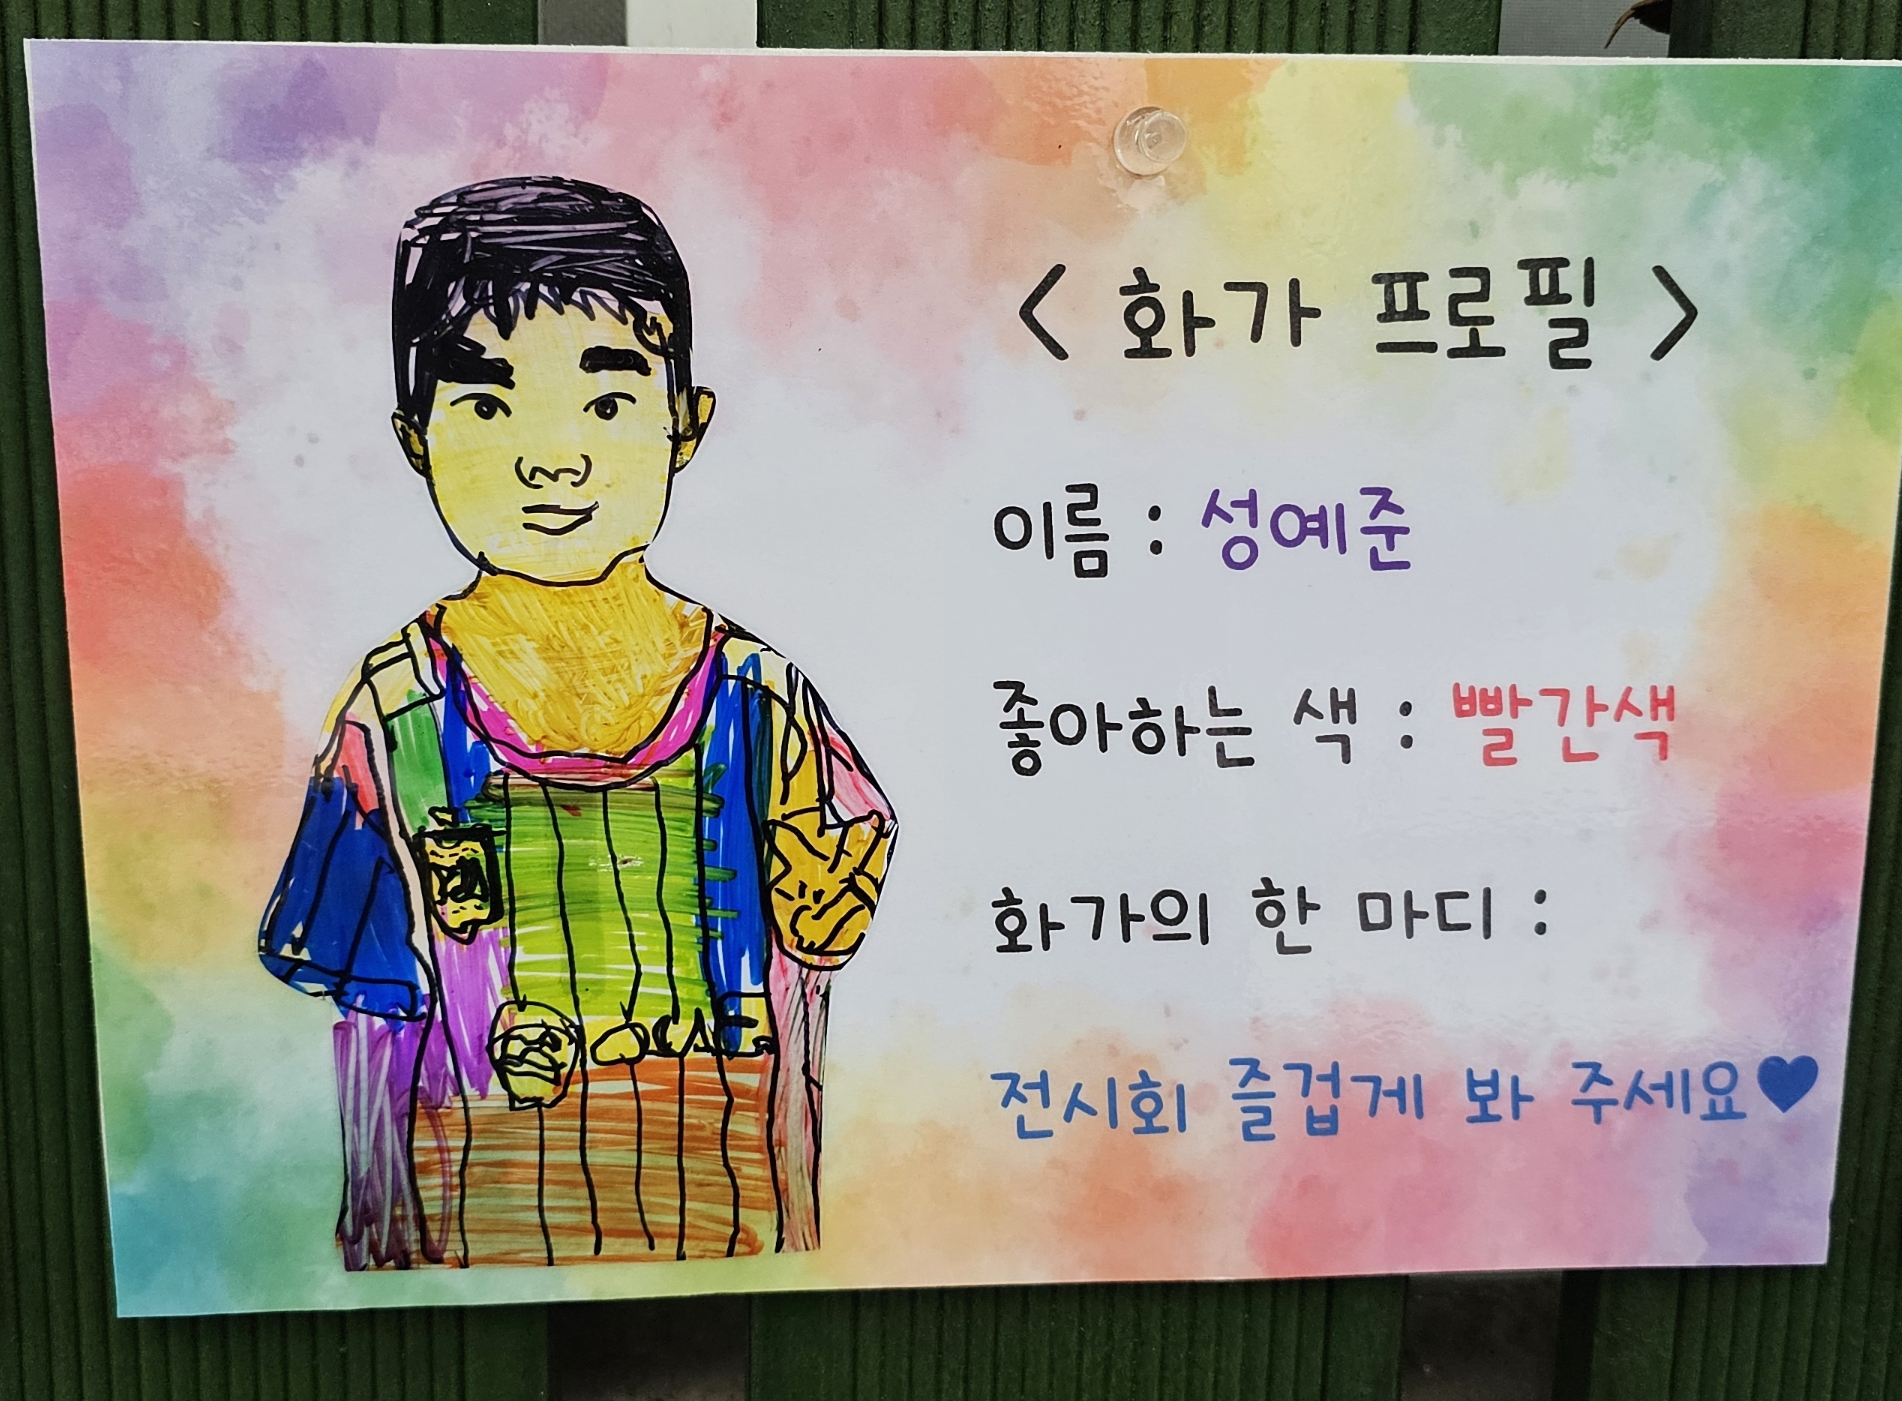 < 화가 프로필 >
이름 : 성예준
좋아하는 색 : 빨간색
화가의 한 마디 :
전시회 즐겁게 봐 주세요♥